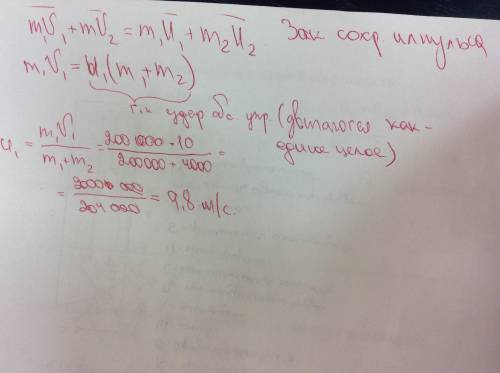 m₁V̄₁ + m̄V₂ = m₁Ū₁ + m₂Ū₂   Зак сохр. импульса
m₁V₁ = U₁(m₁+m₂)
т.к удар абс. упр (двигаются как-
U₁ = m₁V₁ / (m₁+m₂) = 200 000 · 10 / (200000 + 4000) =   единое целое)
= 2000 000 / 204 000 = 9,8 м/с.